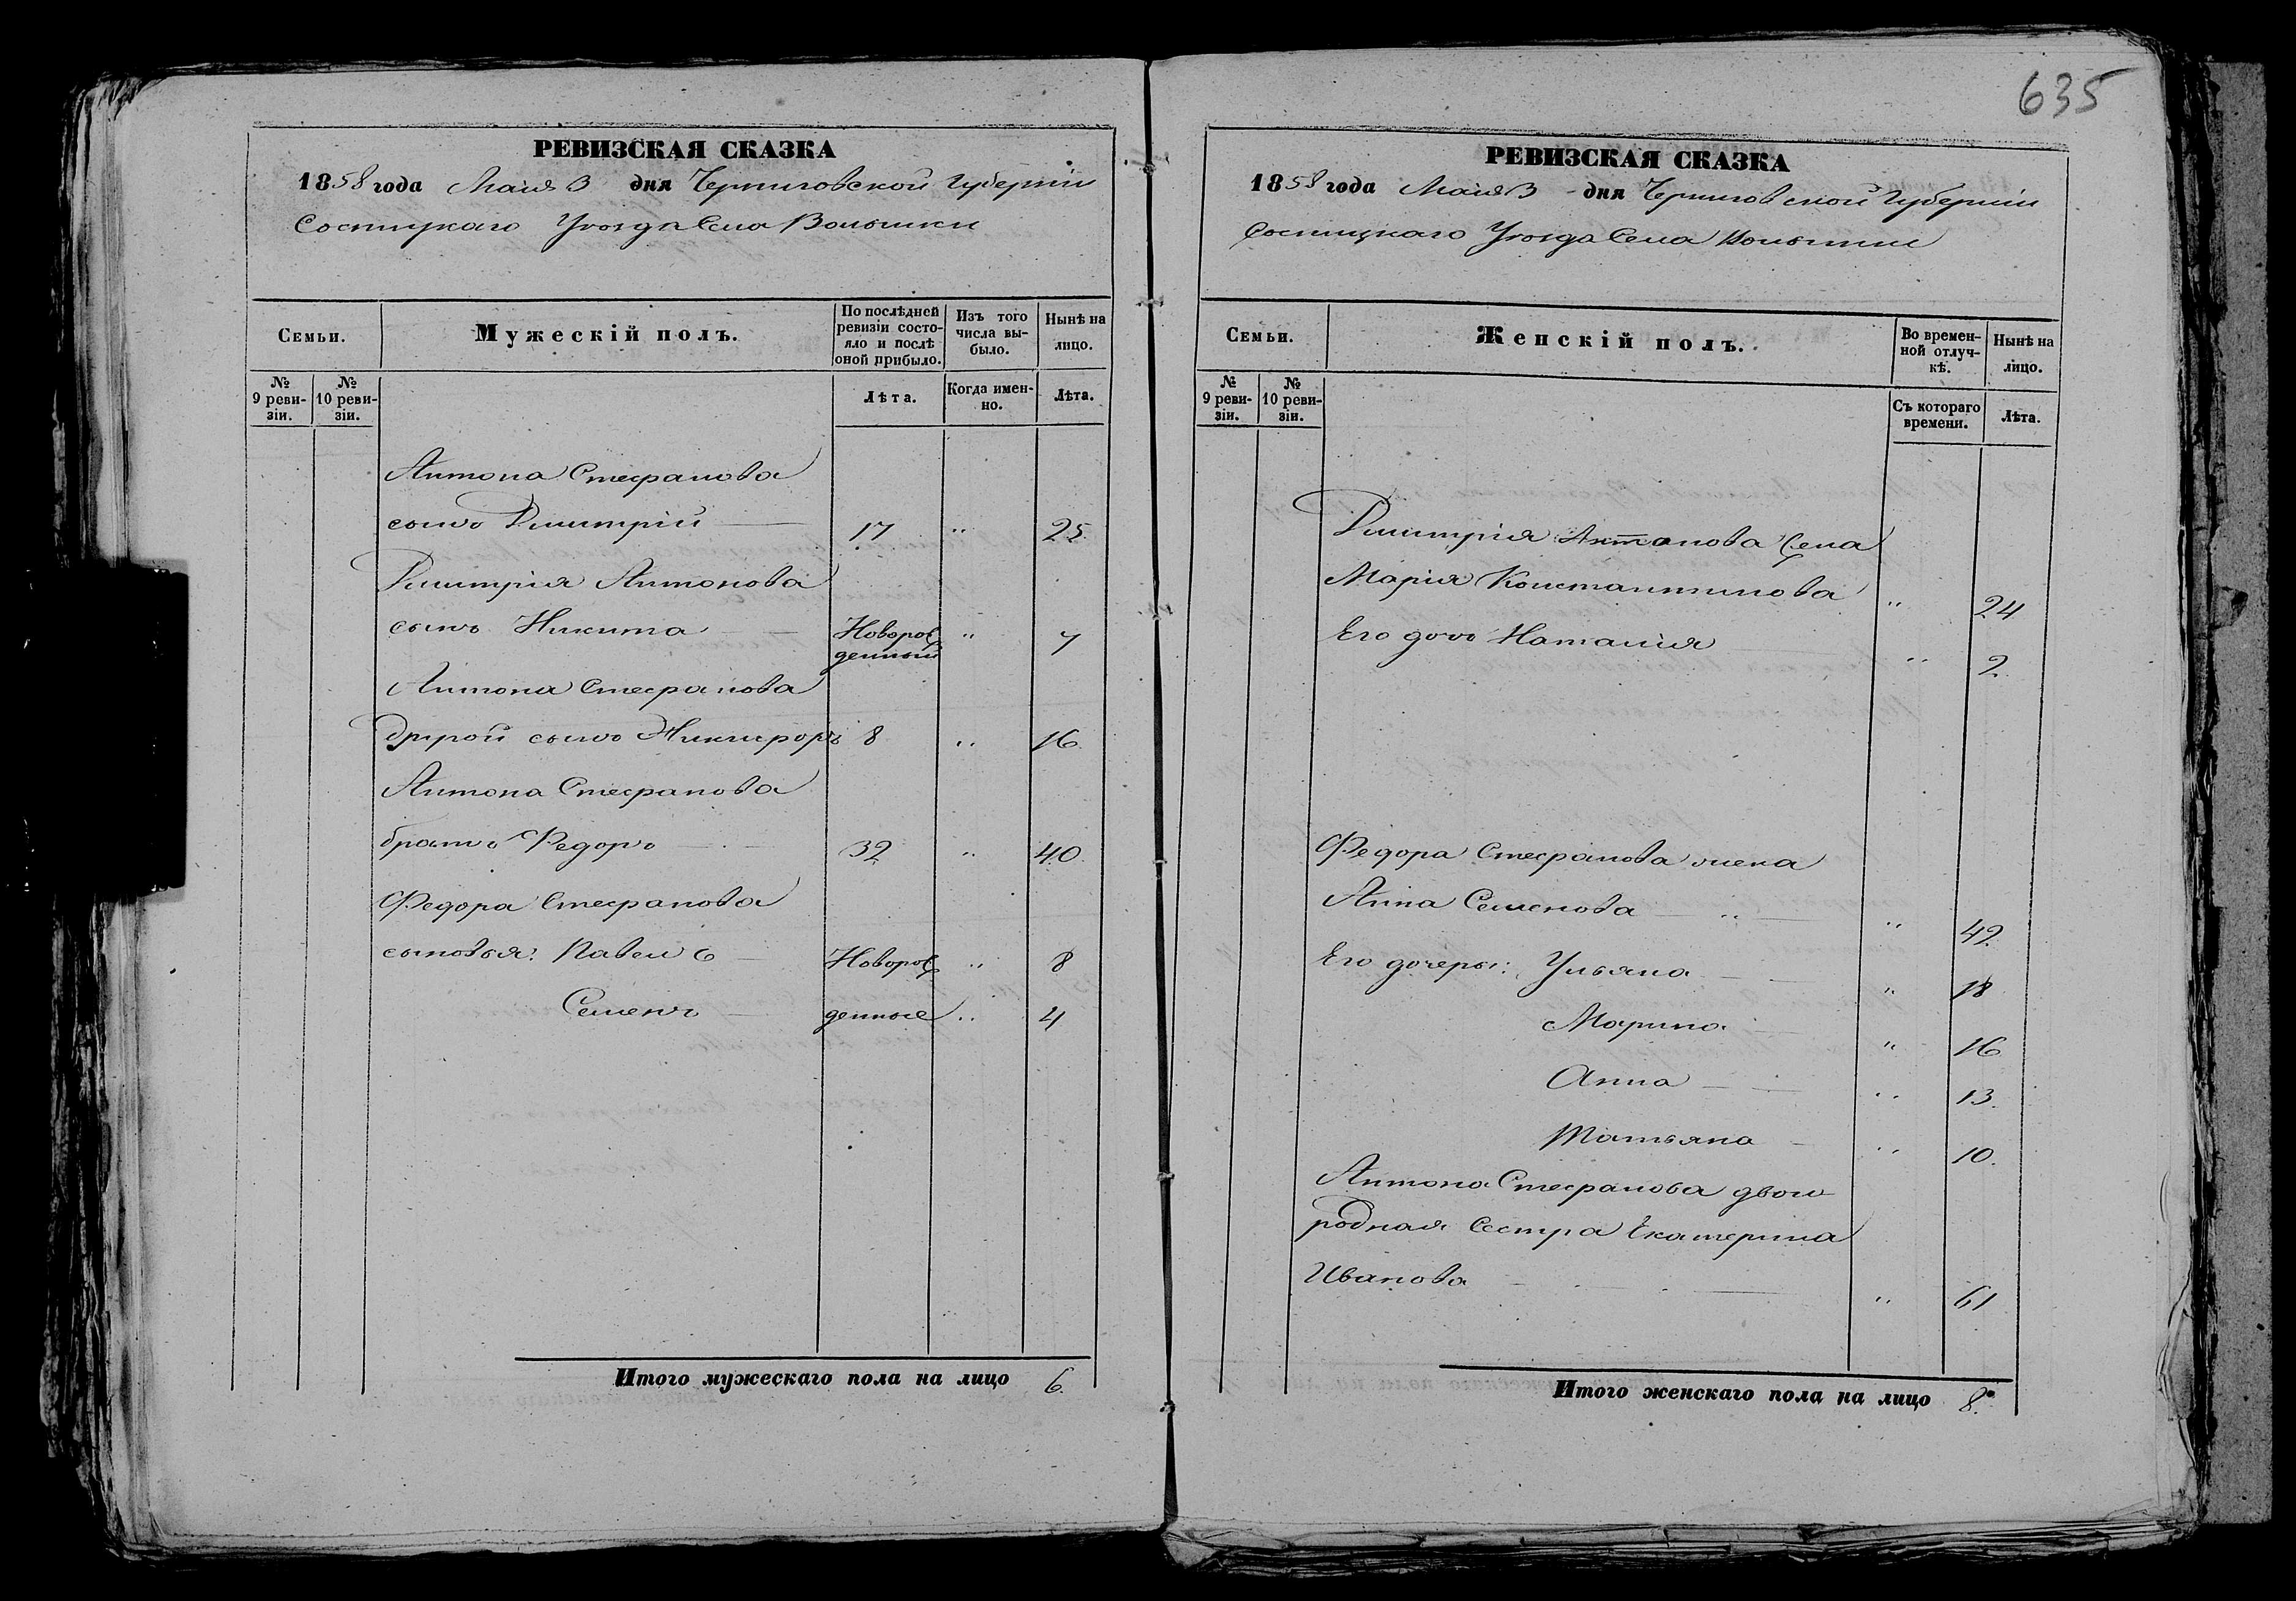 635
РЕВИЗСКАЯ СКАЗКА
1858 года Маія 3 дня Черниговской Губерніи
Сосницкаго Уѣзда Села Волынки
Семьи.
Мужескій полъ.
По послѣдней ревизіи состояло и послѣ оной прибыло.
Изъ того числа выбыло.
Нынѣ на лицо.
№ 9 ревизіи.
№ 10 ревизіи.
Лѣта.
Когда именно.
Лѣта.
Антона Стефанова
сынъ Дмитрій 17 " 25
Дмитрія Антонова
сынъ Никита Новорож " 7
денный
Антона Стефанова
другой сынъ Никифоръ 8 " 16
Антона Стефанова
братъ Федоръ 32 " 40
Федора Стефанова
сыновья: Павелъ Новорож " 8
Семенъ денные " 4
Итого мужескаго пола на лицо 6.
РЕВИЗСКАЯ СКАЗКА
1858 года Маія 3 дня Черниговской Губерніи
Сосницкаго Уѣзда Села Волынки
Семьи.
Женскій полъ.
Во временной отлучкѣ.
Нынѣ на лицо.
№ 9 ревизіи.
№ 10 ревизіи.
Съ котораго времени.
Лѣта.
Дмитрія Антонова жена
Марія Константинова " 24
Его дочь Наталія " 2
Федора Стефанова жена
Анна Семенова " 42
Его дочеры: Ульяна " 18
Марина " 16
Анна " 13.
Татьяна " 10.
Антона Стефанова двою-
родная Сестра Екатерина
Иванова " 61
Итого женскаго пола на лицо 8.